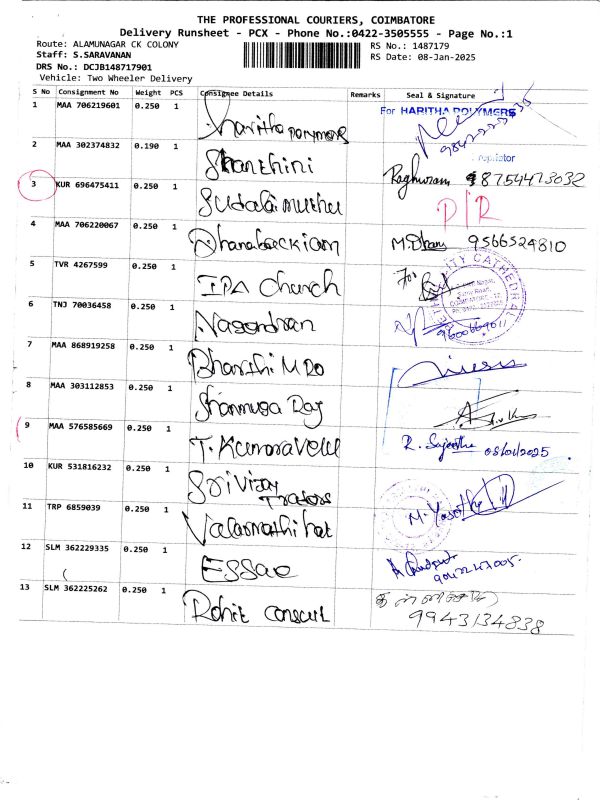 THE PROFESSIONAL COURIERS, COIMBATORE
Delivery Runsheet - PCX - Phone No.:0422-3505555 - Page No.:1
Route: ALAMUNAGAR CK COLONY RS No.: 1487179
Staff: S.SARAVANAN RS Date: 08-Jan-2025
DRS No.: DCJB148717901
Vehicle: Two Wheeler Delivery
S No Consignment No Weight PCS Consignee Details Remarks Seal & Signature
1 MAA 706219601 0.250 1 Haritha polymers For HARITHA POLYMERS
2 MAA 302374832 0.190 1 Shanthini Raghuram 8754473032
3 KUR 696475411 0.250 1 Sudalaimuthu D/R
4 MAA 706220067 0.250 1 Dhanabackiam M. Dhanu 9566524810
5 TVR 4267599 0.250 1 IPA church For
CATHEDRAL
6 TNJ 70036458 0.250 1 Nagendran 9600669611
7 MAA 868919258 0.250 1 Bharthi M Do
8 MAA 303112853 0.250 1 Shanmuga Raj
9 MAA 576585669 0.250 1 T. Kumaravelu R. Sajeetha 08/01/2025
10 KUR 531816232 0.250 1 Sri Vijay
Traders
11 TRP 6859039 0.250 1 Valarmathi hat
12 SLM 362229335 0.250 1 ESSae
13 SLM 362225262 0.250 1 Rohit consult
9943134838